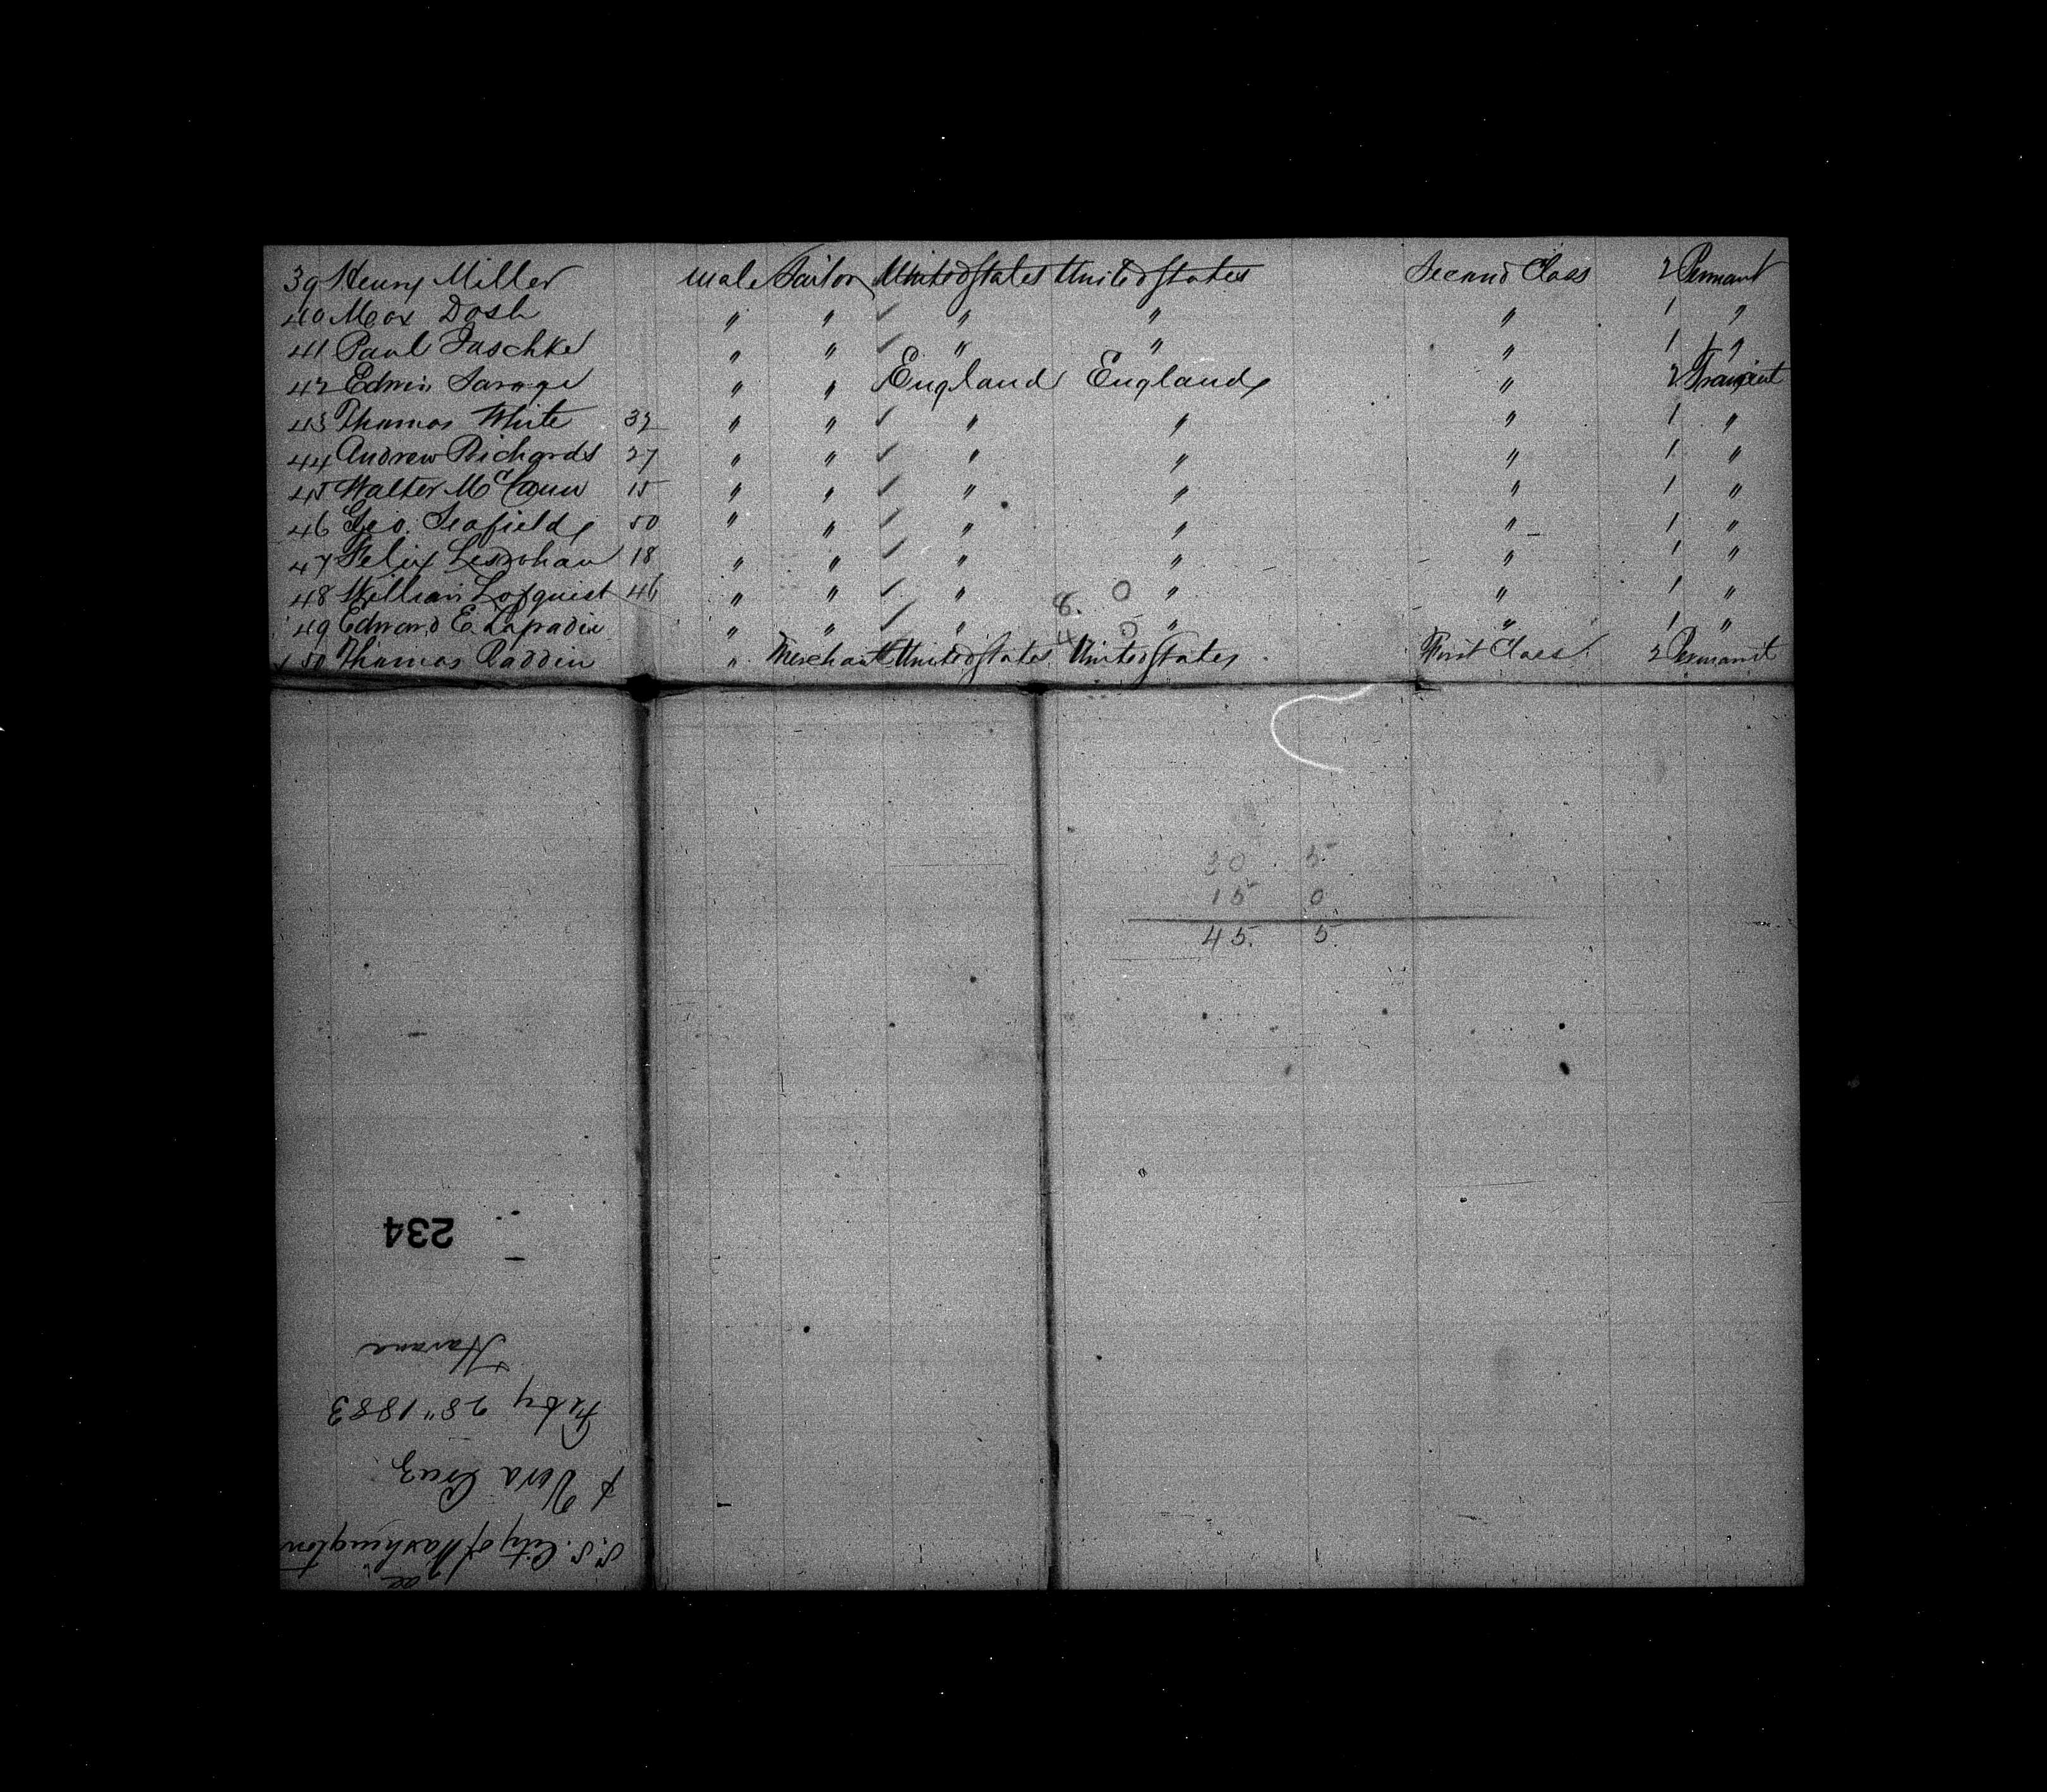 39 Henry Miller Male Sailor United States United States Second Class 2 Permant
40 Max Dosh " " ✓ " " " 1 "
41 Paul Jaschke " " ✓ " " " 1 "
42 Edwin Savage " " England England " 2 Transient
43 Thomas White 32 " " ✓ " " " 1 "
44 Andrew Richards 27 " " ✓ " " " 1 "
45 Walter McCann 15 " " ✓ " " " 1 "
46 Geo. Seafield 50 " " ✓ " " " 1 "
47 Felix 18 " " ✓ " " " 1 "
48 William Lofquist 46 " " ✓ " 8. 0 " " 1 "
49 Edward E. " " ✓ " 4 0 " " 1 "
50 Thomas Raddin " Merchant United States United States First Class 2 Permanit
30 5
15 0
45. 5.
234
S.S. City of Washington
& Vera Cruz
Feby 28" 1883
Havana